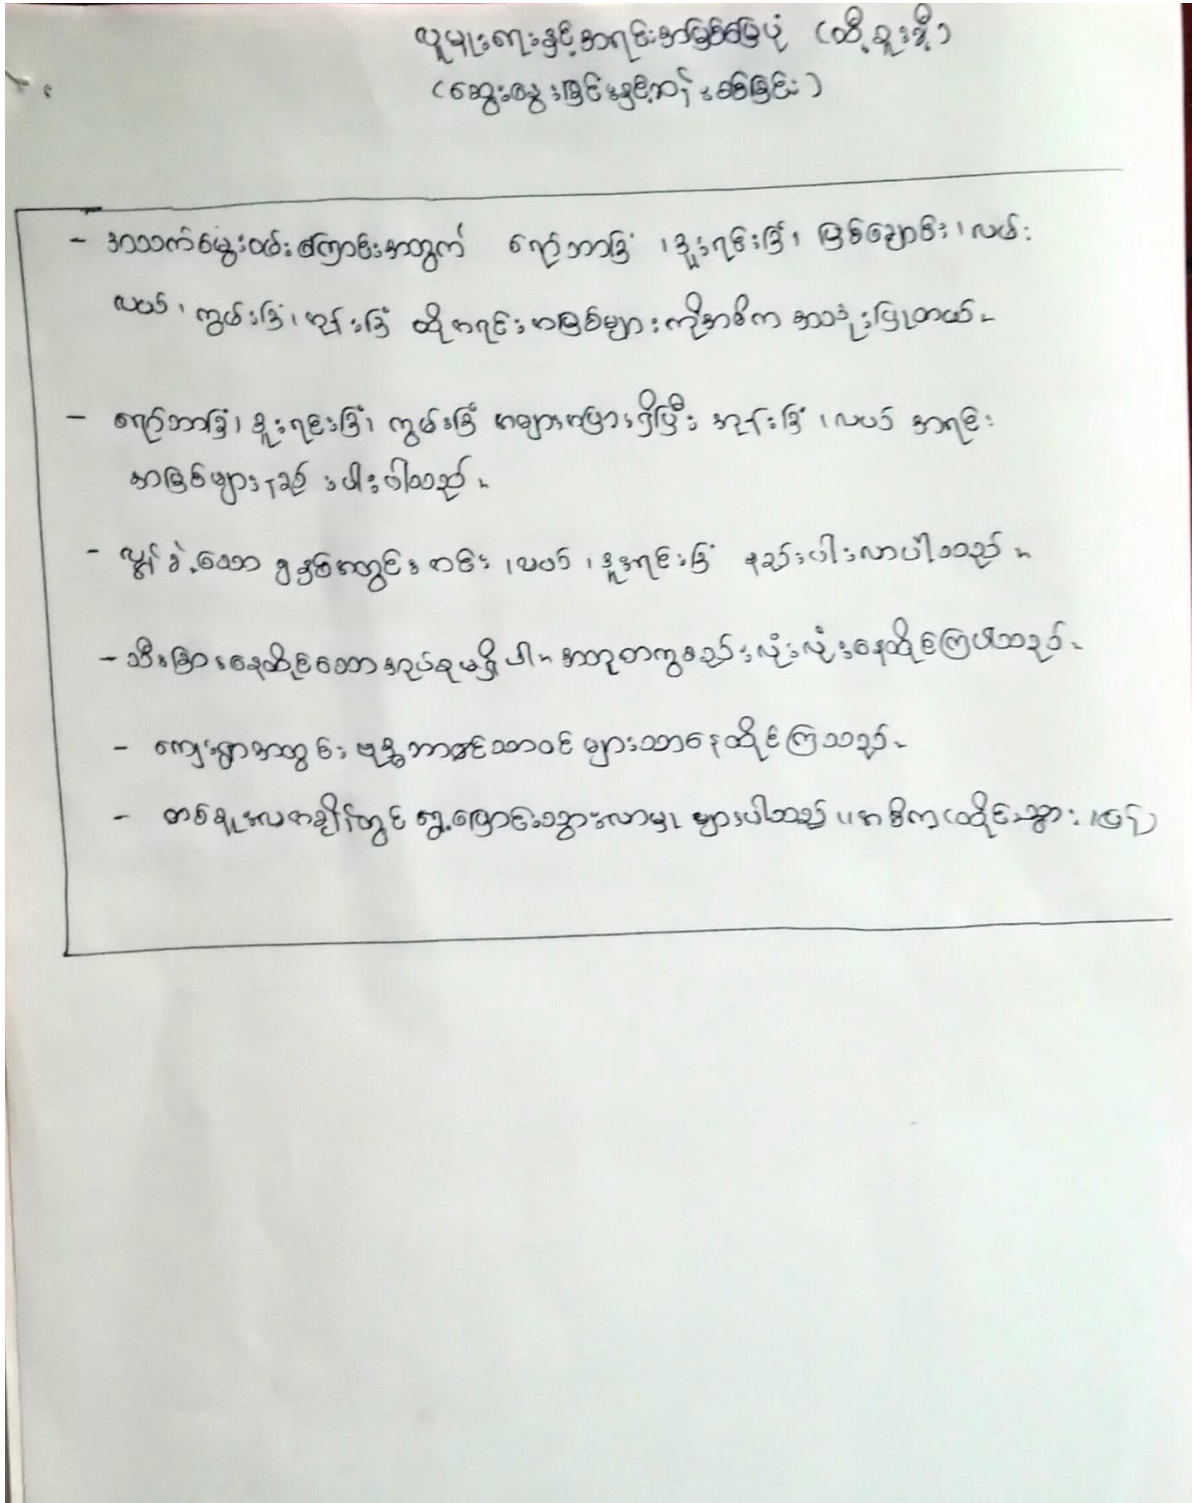 လူမှုရေးနှင့်အရင်းအမြစ်မြေပုံ (ထီ့ခူးခီ)
(ဆွေးနွေးခြင်းနှင့်ဆန်းစစ်ခြင်း)
- အသက်မွေးဝမ်းကျောင်းအတွက် ရော်ဘာခြံ၊ ဒူးရင်းခြံ၊ မြစ်ချောင်း၊ လမ်း
လယ်၊ ကွမ်းခြံ၊ အုန်းခြံ ထိုအရင်းအမြစ်များကိုအဓိက အသုံးပြုတယ်။
- ရော်ဘာခြံ၊ ဒူးရင်းခြံ၊ ကွမ်းခြံ အများအပြားရှိပြီး အုန်းခြံ၊ လယ် အရင်း
အမြစ်များနည်းပါးပါသည်။
- လွန်ခဲ့သော ၅နှစ်အတွင်း လယ်၊ ဒူးရင်းခြံ နည်းပါးလာပါသည်။
- သီးခြားနေထိုင်သောအုပ်စုမရှိပါ။ အတူတကွစည်းလုံးနေထိုင်ကြပါသည်။
- ကျေးရွာအတွင်း ဗုဒ္ဓဘာဝင်သာဝင်များသာနေထိုင်ကြသည်။
- တစ်ချို့လအချိန်တွင် ရွှေ့ပြောင်းသွားလာမှု များပါသည်။ အဓိက (ထိုင်း၊ ထား၊ မြန်)